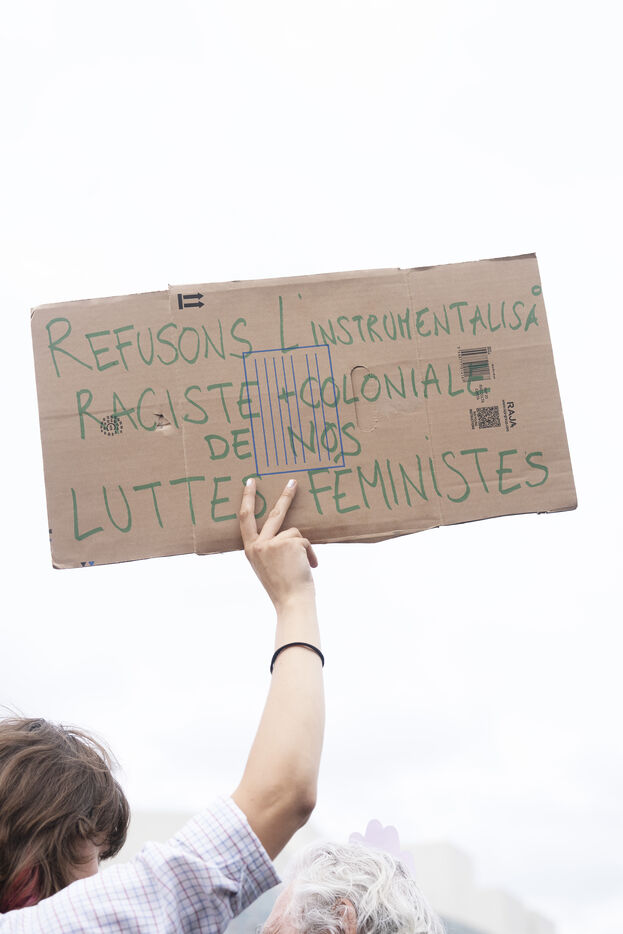 REFUSONS L'INSTRUMENTALISA°
RACISTE + COLONIALE
DE NOS
LUTTES FÉMINISTES
RAJA